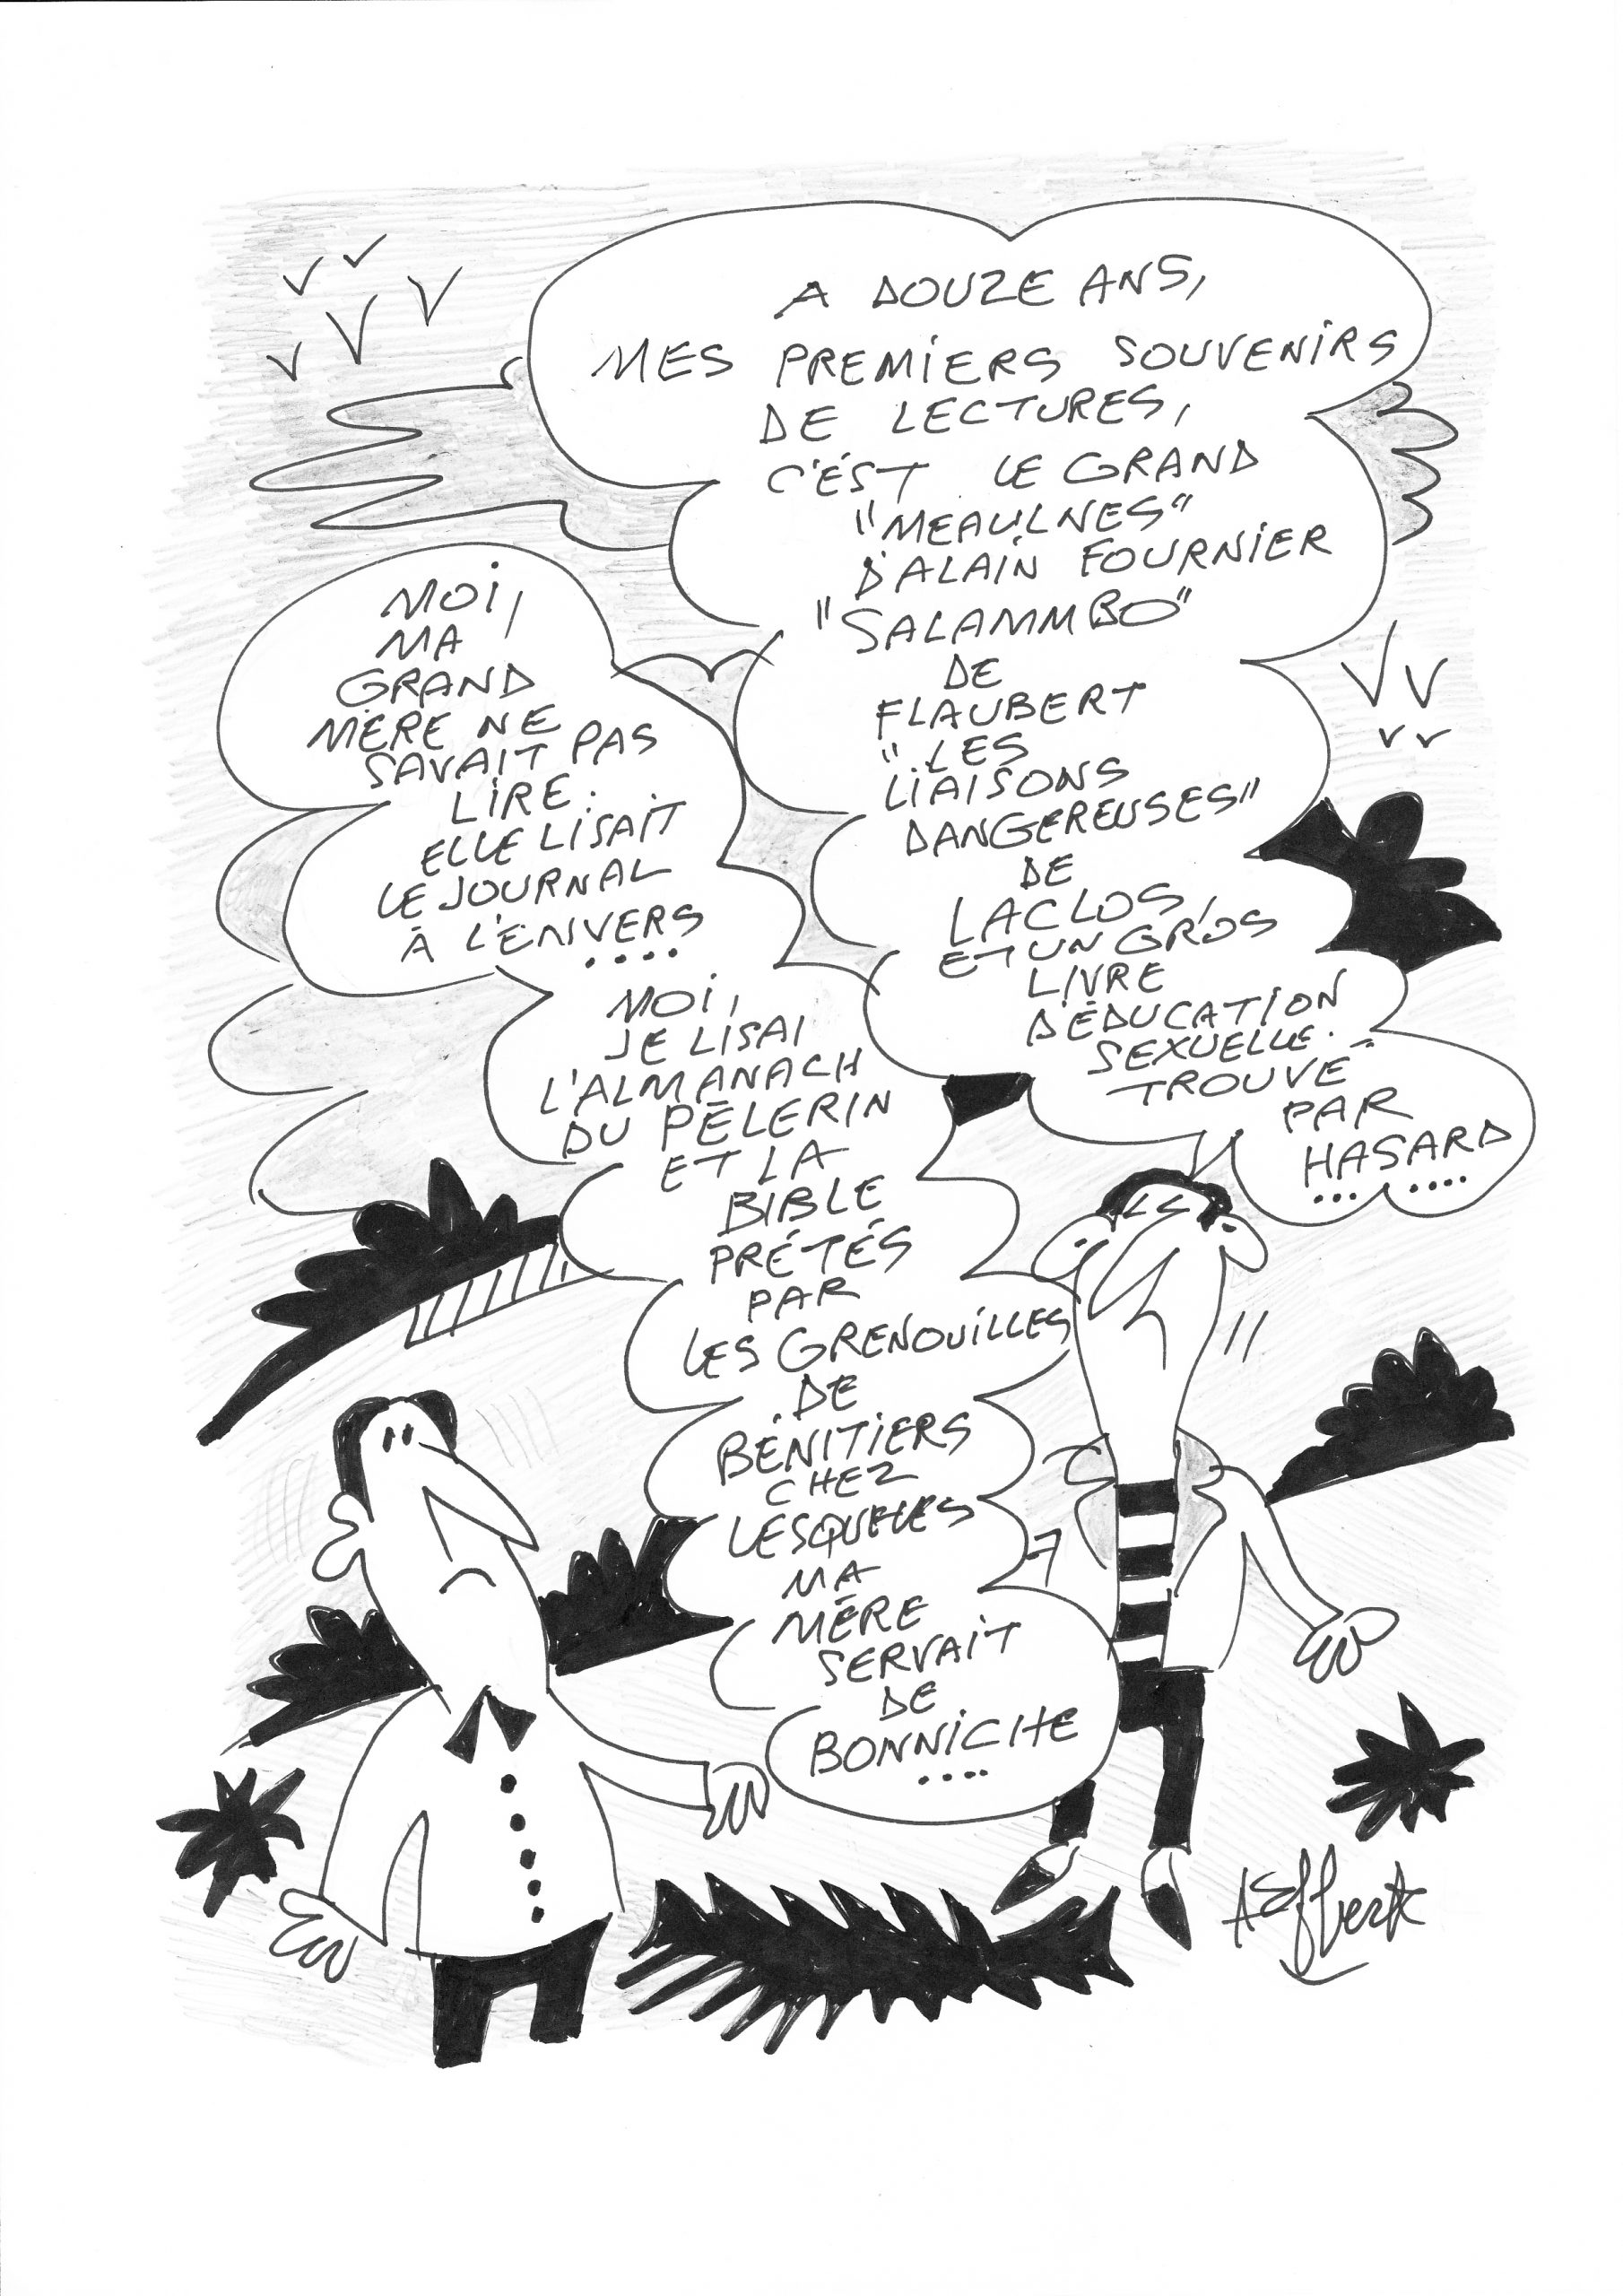 A DOUZE ANS,
MES PREMIERS SOUVENIRS
DE LECTURES,
C'ÉST LE GRAND
"MEAULNES"
D'ALAIN FOURNIER
"SALAMMBO"
DE
FLAUBERT
"LES
LIAISONS
DANGEREUSES"
DE
LACLOS,
ET UN GROS
LIVRE
D'ÉDUCATION
SEXUELLE.
TROUVÉ
PAR
HASARD
.......
MOI,
MA
GRAND
MÈRE NE
SAVAIT PAS
LIRE.
ELLE LISAIT
LE JOURNAL
À L'ENVERS
....
MOI,
JE LISAI
L'ALMANACH
DU PÈLERIN
ET LA
BIBLE
PRÉTÉS
PAR
LES GRENOUILLES
DE
BÉNITIERS
CHEZ
LESQUELLES
MA
MÈRE
SERVAIT
DE
BONNICHE
....